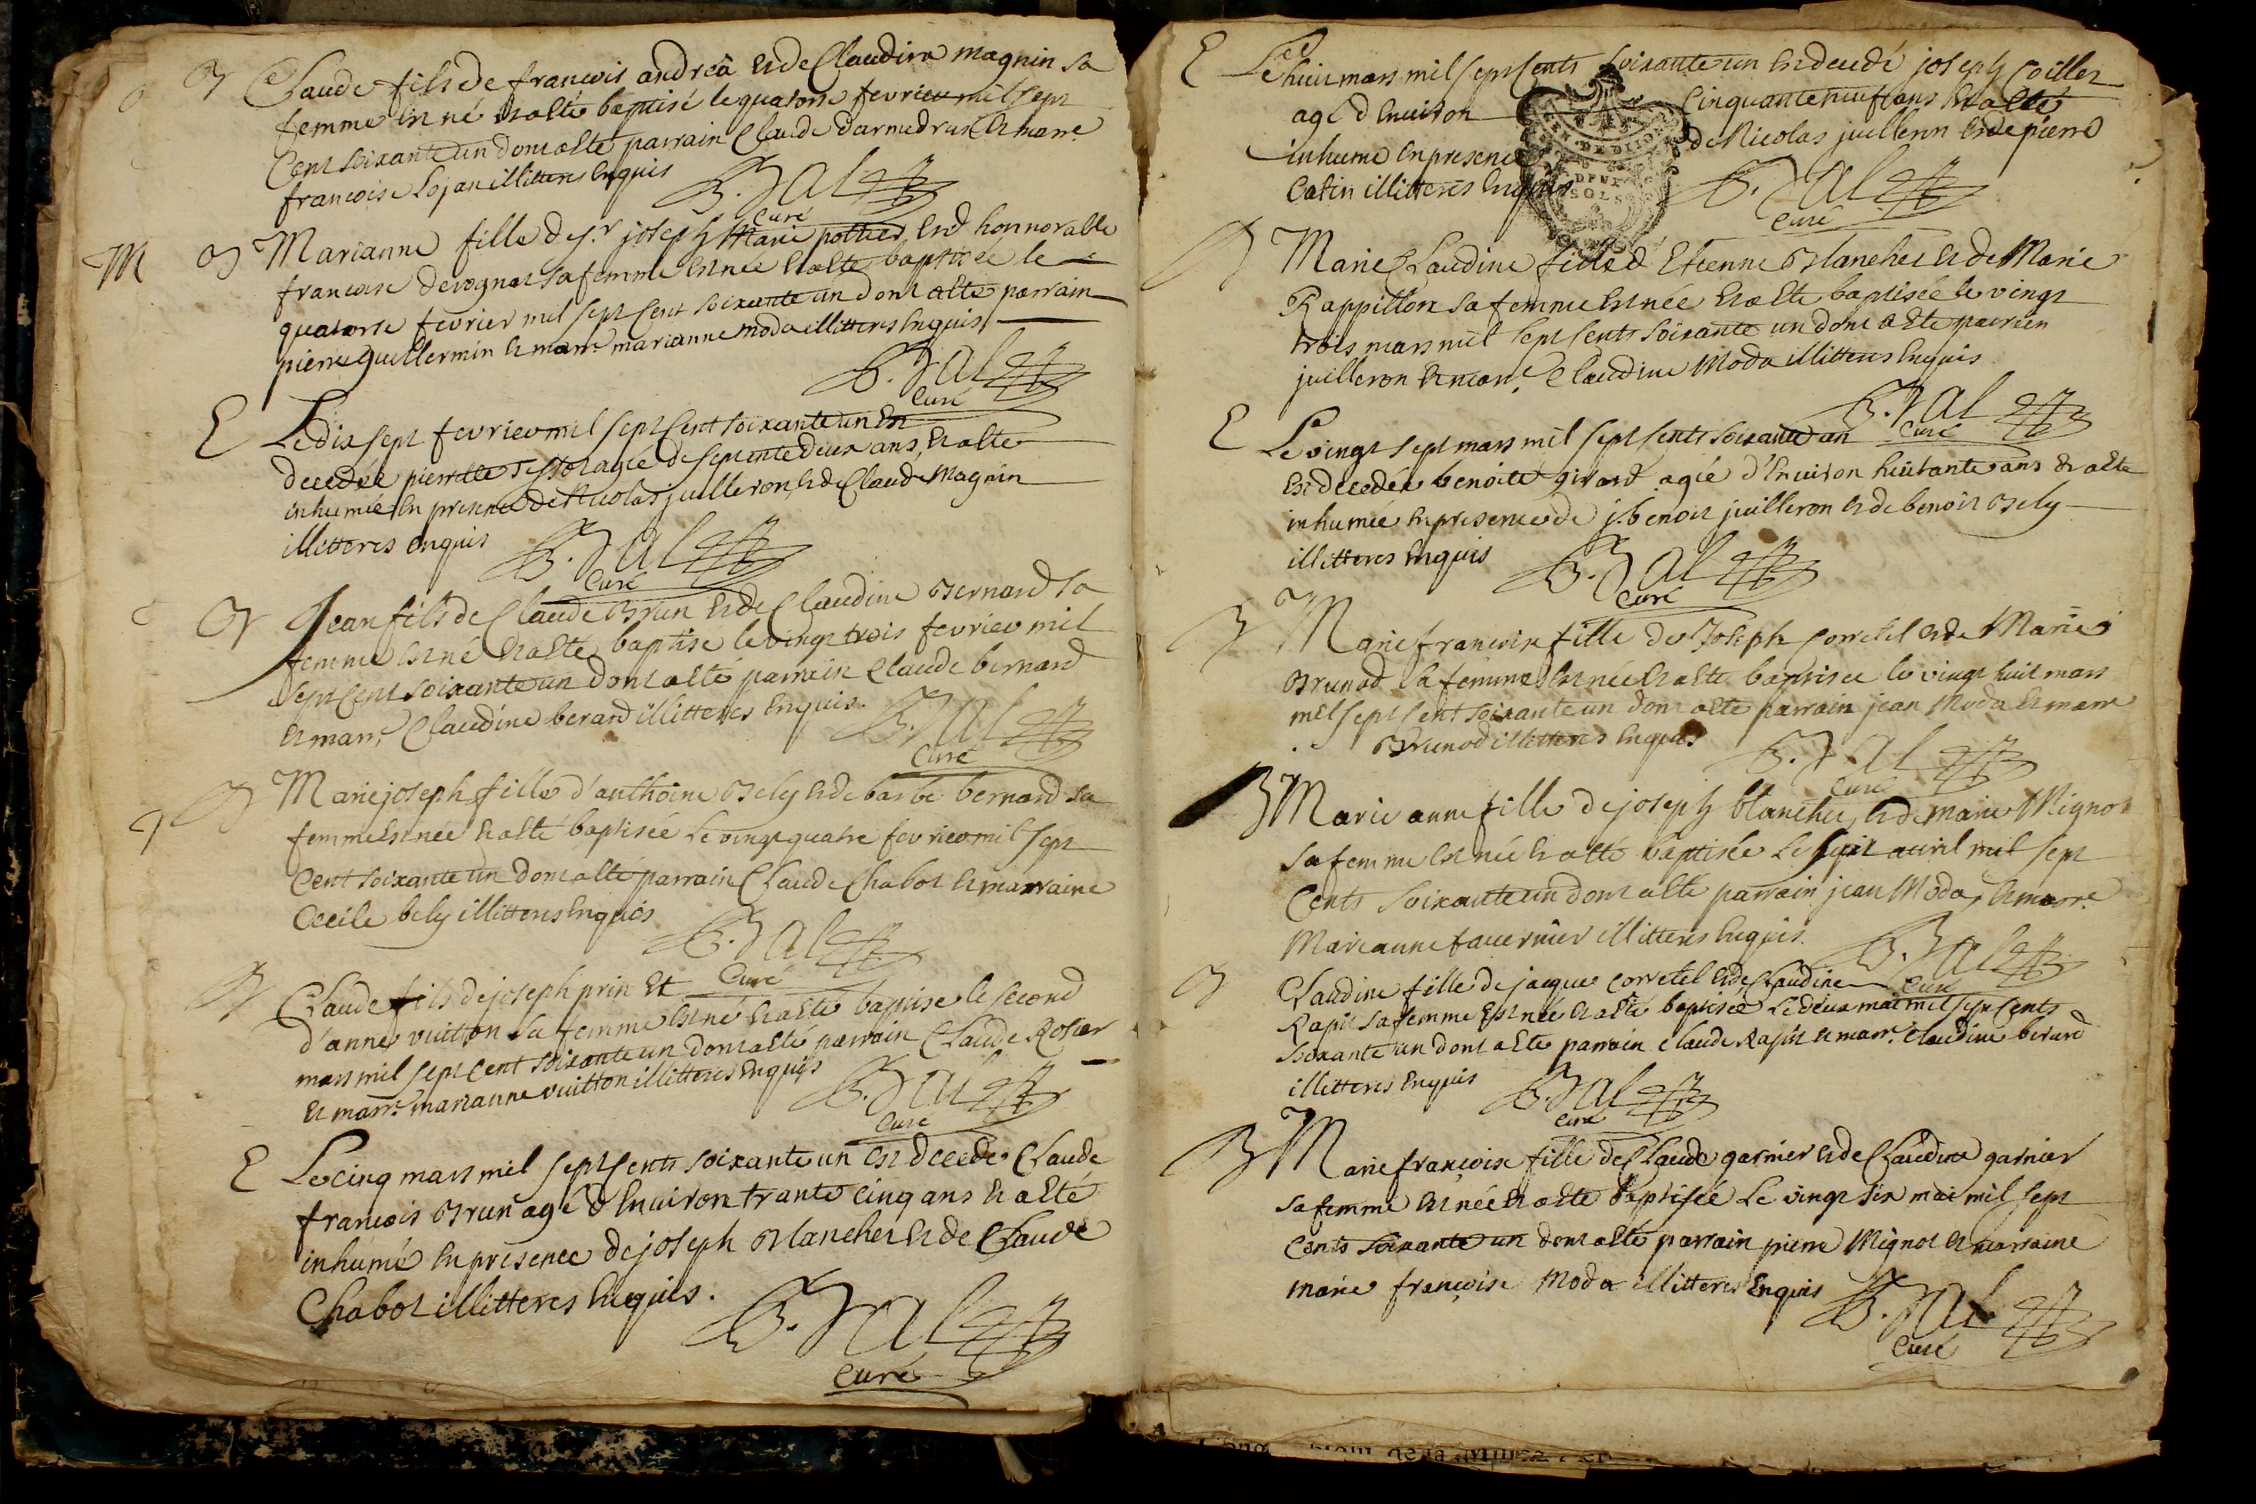 B Claude fils de francois andréa et de Claudine magnin sa
femme est né et a été baptisé le quatorse fevrier mil sept
Cent soixante un dont a été parrain Claude et marr.e
francoise illitteres Enquis
B. Jal
Curé
M B Marianne fille de s.r joseph Marie pottier et d honnorable
francoise devognat sa femme est née et a été baptisée le
quatorse fevrier mil sept Cent soixante un dont a été parrain
pierre guillermin et marr.e marianne moda illitteres Enquis
B. Jal
Curé
E Le dix sept fevrier mil sept Cent soixante un Est
decedée pierrette agée de septente deux ans, et a été
inhumée En presence de Nicolas juilleron, et de Claude Magnin
illitteres enquis
B. Jal
Curé
B Jean fils de Claude Brun et de Claudine Bernard sa
femme est né et a été baptisé le vingt trois fevrier mil
sept Cent soixante un dont a été parrain Claude bernard
et marr.e Claudine berard illitteres Enquis.
B. Jal
Curé
B Marie joseph fille d'anthoine Bely et de barbe bernard sa
femme est née et a été baptisée le vingt quatre fevrier mil sept
Cent soixante un dont a été parrain Claude Chabot et marraine
Cecile bely illitteres Enquis
B. Jal
Curé
B Claude fils de joseph prin Et
d'anne vuitton sa femme est né et a été baptisé le second
mars mil sept Cent soixante un dont a été parrain Claude Rosier
et marr.e marianne vuitton illitteres Enquis
B. Jal
Curé
E Le cinq mars mil sept Cents soixante un est decedé Claude
francois Brun agé d Environ trante cinq ans et a été
inhumé En presence de joseph Blanchet et de Claude
Chabot illitteres Enquis.
B. Jal
Curé
E Le huit mars mil sept Cents soixante un est decedé joseph Coillet
agé d Environ Cinquante neuf ans et a été
inhumé en presence de Nicolas juilleron et de pierre
Catin illitteres Enquis
B. Jal
Curé
DE DIJON
DEUX
SOLS
B Marie Claudine fille d Etienne Blanchet et de Marie
Rappillon sa femme est née et a été baptisée le vingt
trois mars mil sept Cents soixante un dont a été parrien
juilleron et marr.e Claudine Moda illitteres Enquis
B. Jal
Curé
E Le vingt sept mars mil sept Cents soixante un
est decedée benoite girard agée d'Environ huitante ans et a été
inhumée en presence de j. benoit juilleron et de benoit Bely
illitteres Enquis
B. Jal
Curé
B Marie francoise fille de Joseph Corretel et de Marie
Brunod sa femme est née et a été baptisée le vingt huit mars
mil sept Cent soixante un dont a été parrain jean Moda et marr.e
Brunod illitteres Enquis
B. Jal
Curé
B Marie anne fille de joseph blanchet, et de marie Mignot
sa femme est née et a été baptisée le huit avril mil sept
Cents soixante un dont a été parrain jean Moda, et marr.e
Marieanne favernier illitteres Enquis.
B. Jal
Curé
B Claudine fille de jacque Corretel et de Claudine
Rapit sa femme Est née et a été baptisée le deux mai mil sept Cents
soixante un dont a été parrain Claude Rapit et marr.e Claudine berard
illitteres Enquis
B. Jal
Curé
B Marie françoise fille de Claude garnier et de Claudine garnier
sa femme est née et a été baptisée le vingt six mai mil sept
Cents soixante un dont a été parrain pierre Mignot et marraine
marie françoise Moda illitteres Enquis
B. Jal
Curé